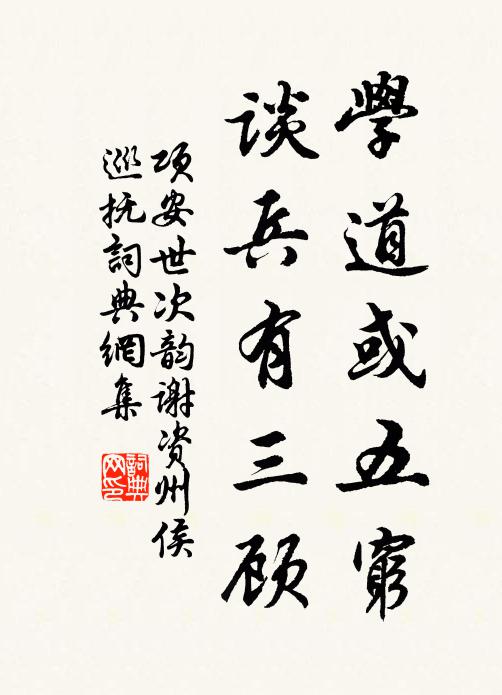 學道或五窮
談兵有三顾
项安世次韵谢资州侯
巡抚詞典網集
詞典
网印